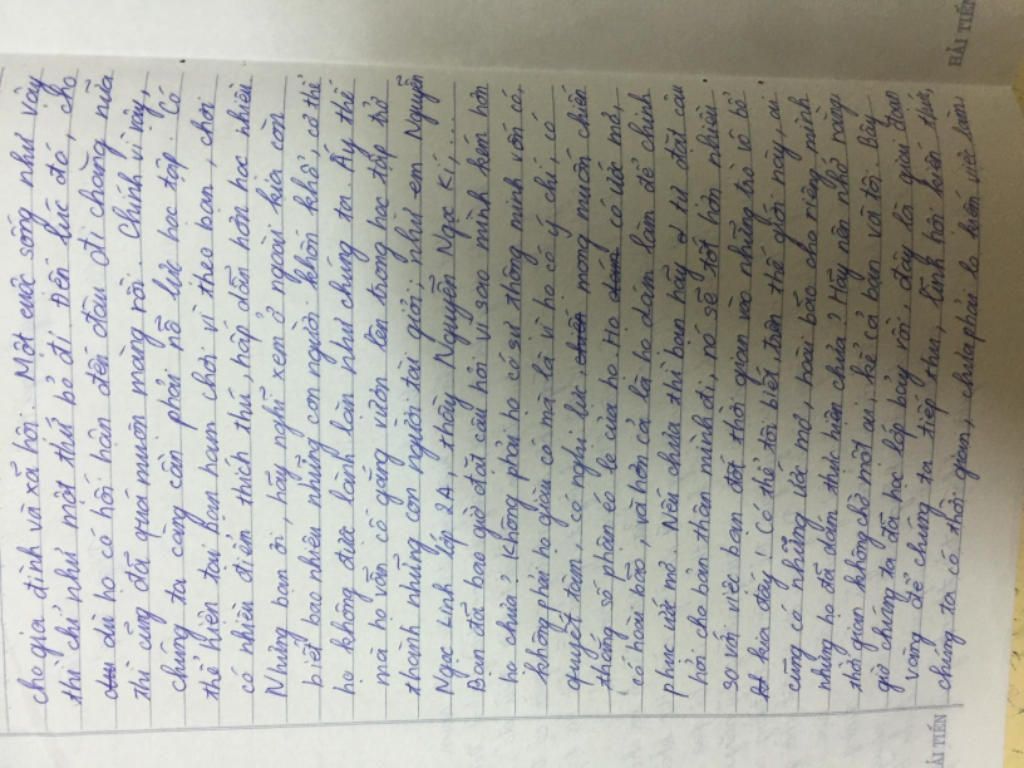 cho gia đình và xã hội. Một cuộc sống như vậy
thì chỉ như một thứ bỏ đi. Đến lúc đó, cho
dù họ có hối hận đến đâu đi chăng nữa
thì cũng đã quá muộn màng rồi. Chính vì vậy,
chúng ta càng cần phải nỗ lực học tập. Có
thể hiện tại bạn ham chơi vì theo bạn, chơi
có nhiều điểm thích thú, hấp dẫn hơn học nhiều.
Nhưng bạn ơi, hãy nghĩ xem ở ngoài kia còn
biết bao nhiêu những con người khốn khổ, cơ thể
họ không được lành lặn như chúng ta. Ấy thế
mà họ vẫn cố gắng vươn lên trong học tập trở
thành những con người tài giỏi; như em Nguyễn
Ngọc Linh lớp 2A, thầy Nguyễn Ngọc Kí,...
Bạn đã bao giờ đặt câu hỏi vì sao mình kém hơn
họ chưa? Không phải họ có sự thông minh vốn có,
không phải họ giàu có mà là vì họ có ý chí, có
quyết tâm, có nghị lực, mong muốn chiến
thắng số phận éo le của họ. Họ có ước mơ,
có hoài bão, và hơn cả là họ dám làm để chinh
phục ước mơ. Nếu chưa thì bạn hãy tự đặt câu
hỏi cho bản thân mình đi, nó sẽ tốt hơn nhiều
so với việc bạn đốt thời gian vào những trò vô bổ
kia đấy! Có thể tôi biết, trên thế giới này, ai
cũng có những ước mơ, hoài bão cho riêng mình
nhưng họ đã dám thực hiện chưa? Hãy nên nhớ rằng
thời gian không chờ một ai, kể cả bạn và tôi. Bây
giờ chúng ta đã học lớp bảy rồi, đây là giai đoạn
vàng để chúng ta tiếp thu, lĩnh hội kiến thức,
chúng ta có thời gian, chưa phải lo kiếm việc làm
HẢI TIẾN
HẢI TIẾN